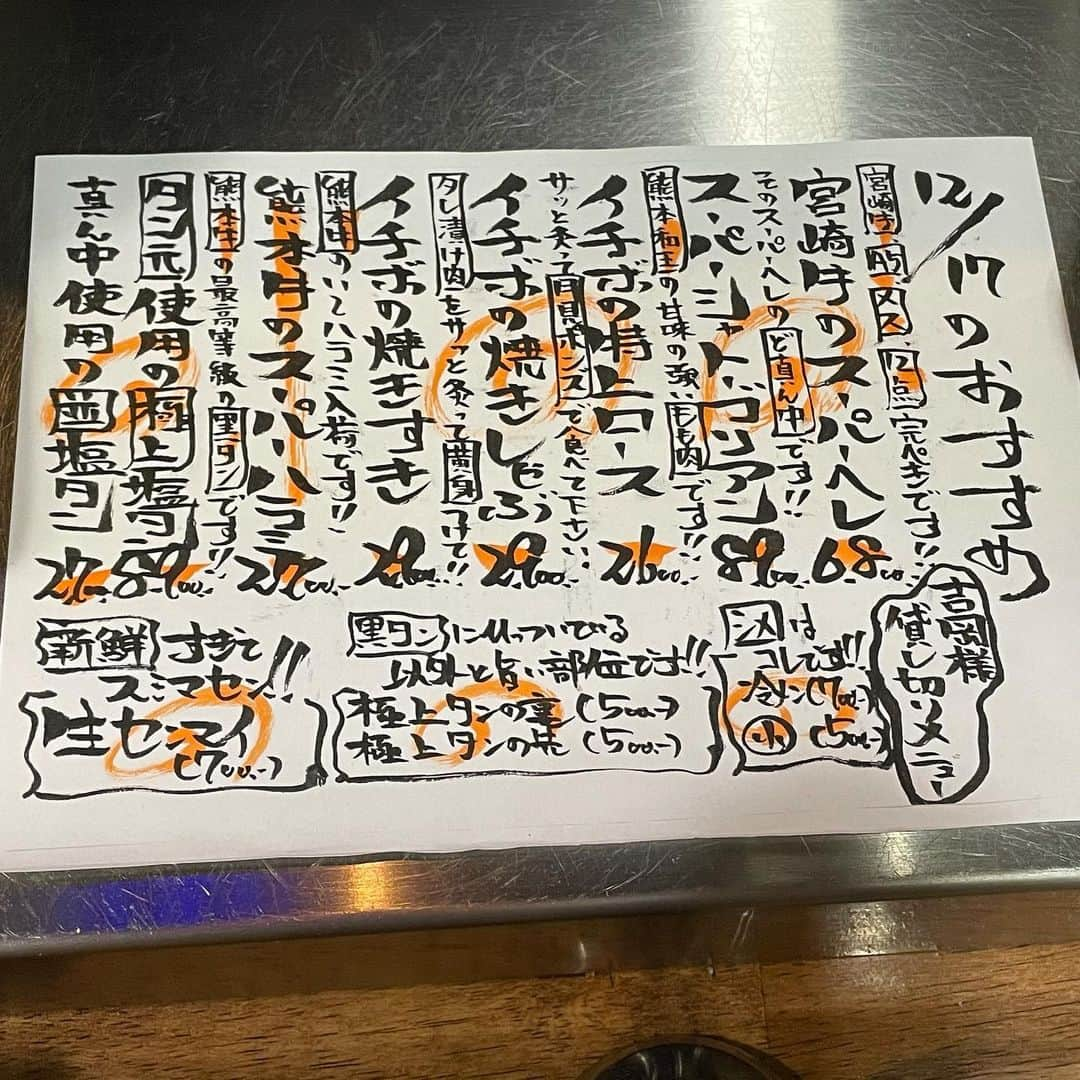 12/17のおすすめ
宮崎牛A5メス、12点完ぺきです!!
宮崎牛のスーパーヘレ 6800.-
そのスーパーヘレのど真ん中です!!
スーパーシャトーブリアン 8900.-
熊本和王の甘味の強いもも肉です!!
イチボの特上ロース 2600.-
サッと炙って自見ポンズで食べて下さい、
イチボの焼きしゃぶ 2900.-
タレ漬け肉をサッと炙って黄身つけて!!
イチボの焼きすき 2900.-
熊本牛のいいハラミ入荷です!!
熊本牛のスーパーハラミ 2700.-
熊本牛の最高等級の黒タンです!!
タン元使用の極上塩タン 8900.-
真ん中使用の並塩タン 27
吉岡様
貸し切りメニュー
〆は
コレです!!
冷メン(700.-)
小(500.-)
黒タンにひっついている
以外と旨い部位です!!
極上タンの裏(500.-)
極上タンの先(500.-)
新鮮すぎて
スミマセン!!
生センマイ
(700.-)